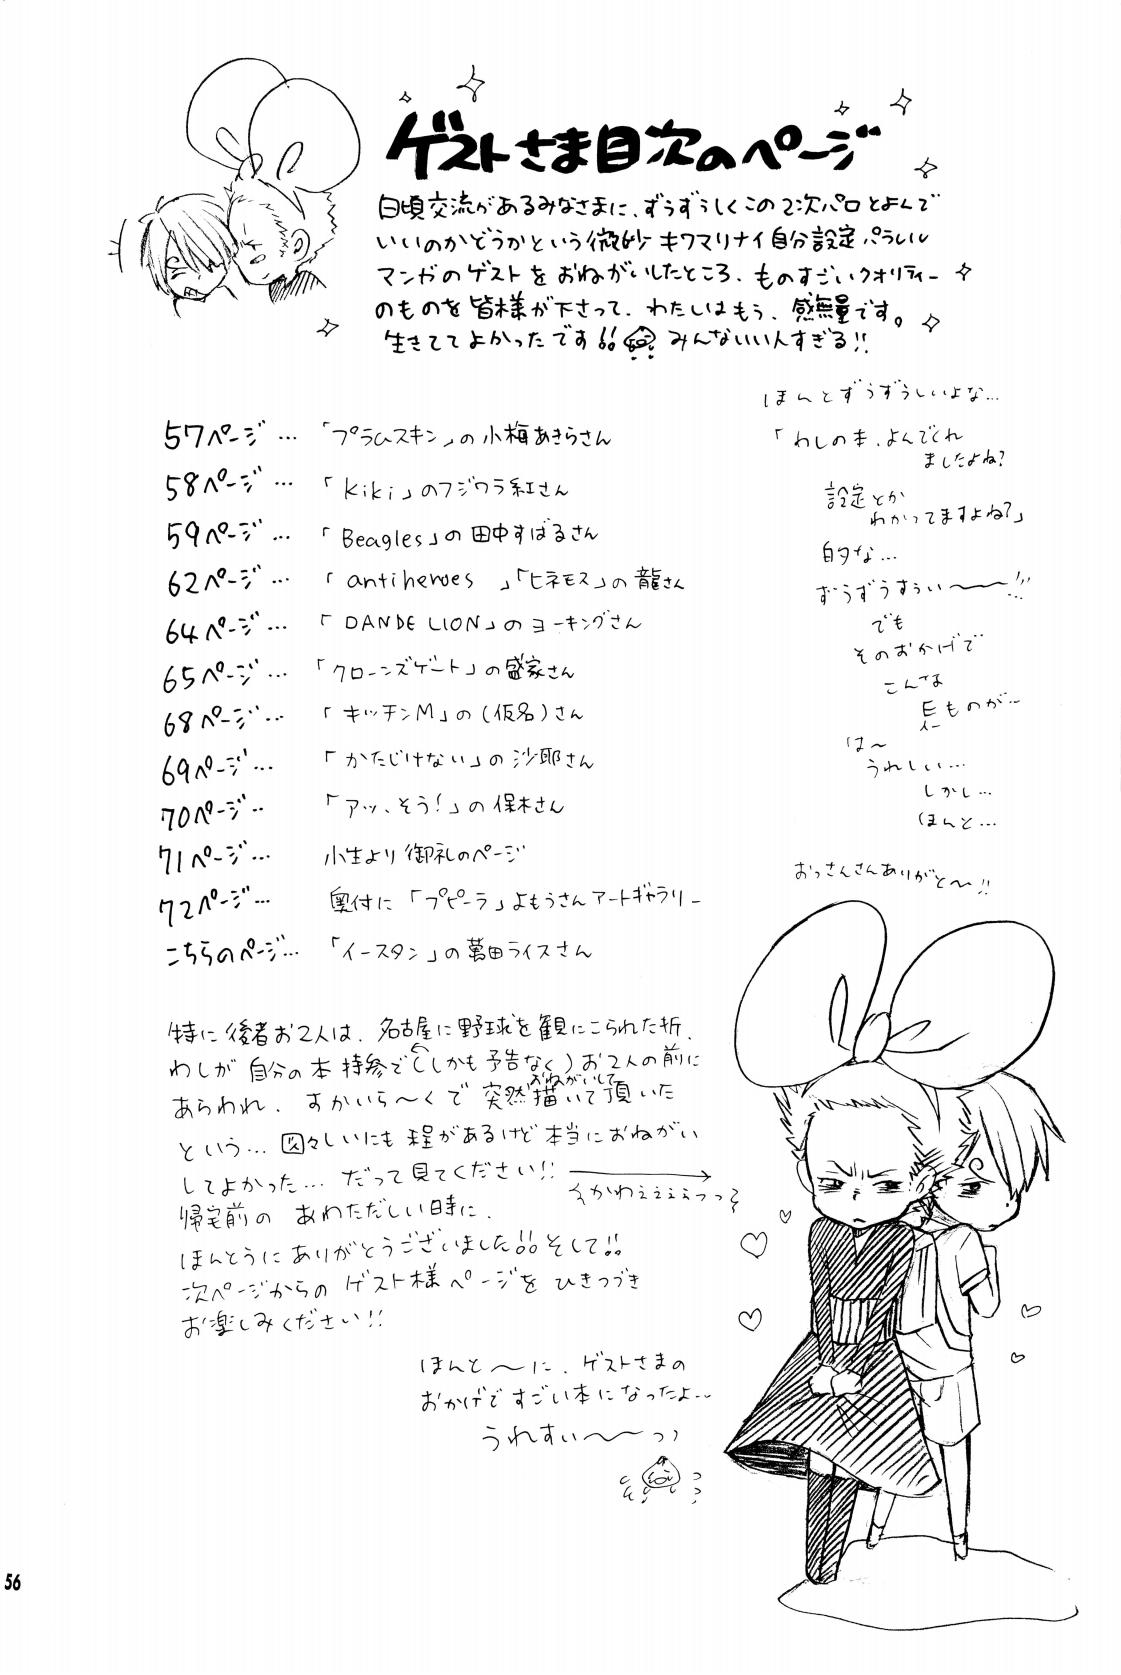 ゲストさま目次のページ
日頃交流があるみなさまに、ずうずうしくこの2次パロとよんで
いいのかどうかという微妙キワマリナイ自分設定パラレル
マンガのゲストをおねがいしたところ、ものすごいクオリティー
のものを皆様が下さって、わたしはもう、感無量です。
生きててよかったです!! みんないい人すぎる!!
57ページ… 「プラムスキン」の小梅あきらさん
58ページ… 「kiki」のフジワラ紅さん
59ページ… 「Beagles」の田中すばるさん
62ページ… 「antiheroes」「ヒネモス」の龍さん
64ページ… 「DANDE LION」のヨーキングさん
65ページ… 「クローンズゲート」の盛家さん
68ページ… 「キッチンM」の(仮名)さん
69ページ… 「かたじけない」の沙耶さん
70ページ‥ 「アッ、そう!」の保木さん
71ページ… 小生より御礼のページ
72ページ… 奥付に「プピーラ」よもうさんアートギャラリー
こちらのページ… 「イースタン」の萬田ライスさん
ほんとずうずうしいよな…
「わしの本、よんでくれ
ましたよね?
設定とか
わかってますよね?」
的な…
ずうずうすぅい〜〜!!!
でも
そのおかげで
こんなな
ものが…
は〜
うれしい…
しかし…
ほんと…
おっさんさんありがと〜!!
特に後者お2人は、名古屋に野球を観にこられた折、
わしが自分の本持参で(しかも予告なく)お2人の前に
あらわれ、すかいら〜くで突然おねがいして描いて頂いた
という… 図々しいにも程があるけど本当におねがい
してよかった… だって見てください!!
かわえぇぇぇっっ
帰宅前のあわただしい時に、
ほんとうにありがとうございました!!そして!!
次ページからのゲスト様ページをひきつづき
お楽しみください!!
ほんと〜に、ゲストさまの
おかげですごい本になったよ…
うれすぃ〜〜っっ
56